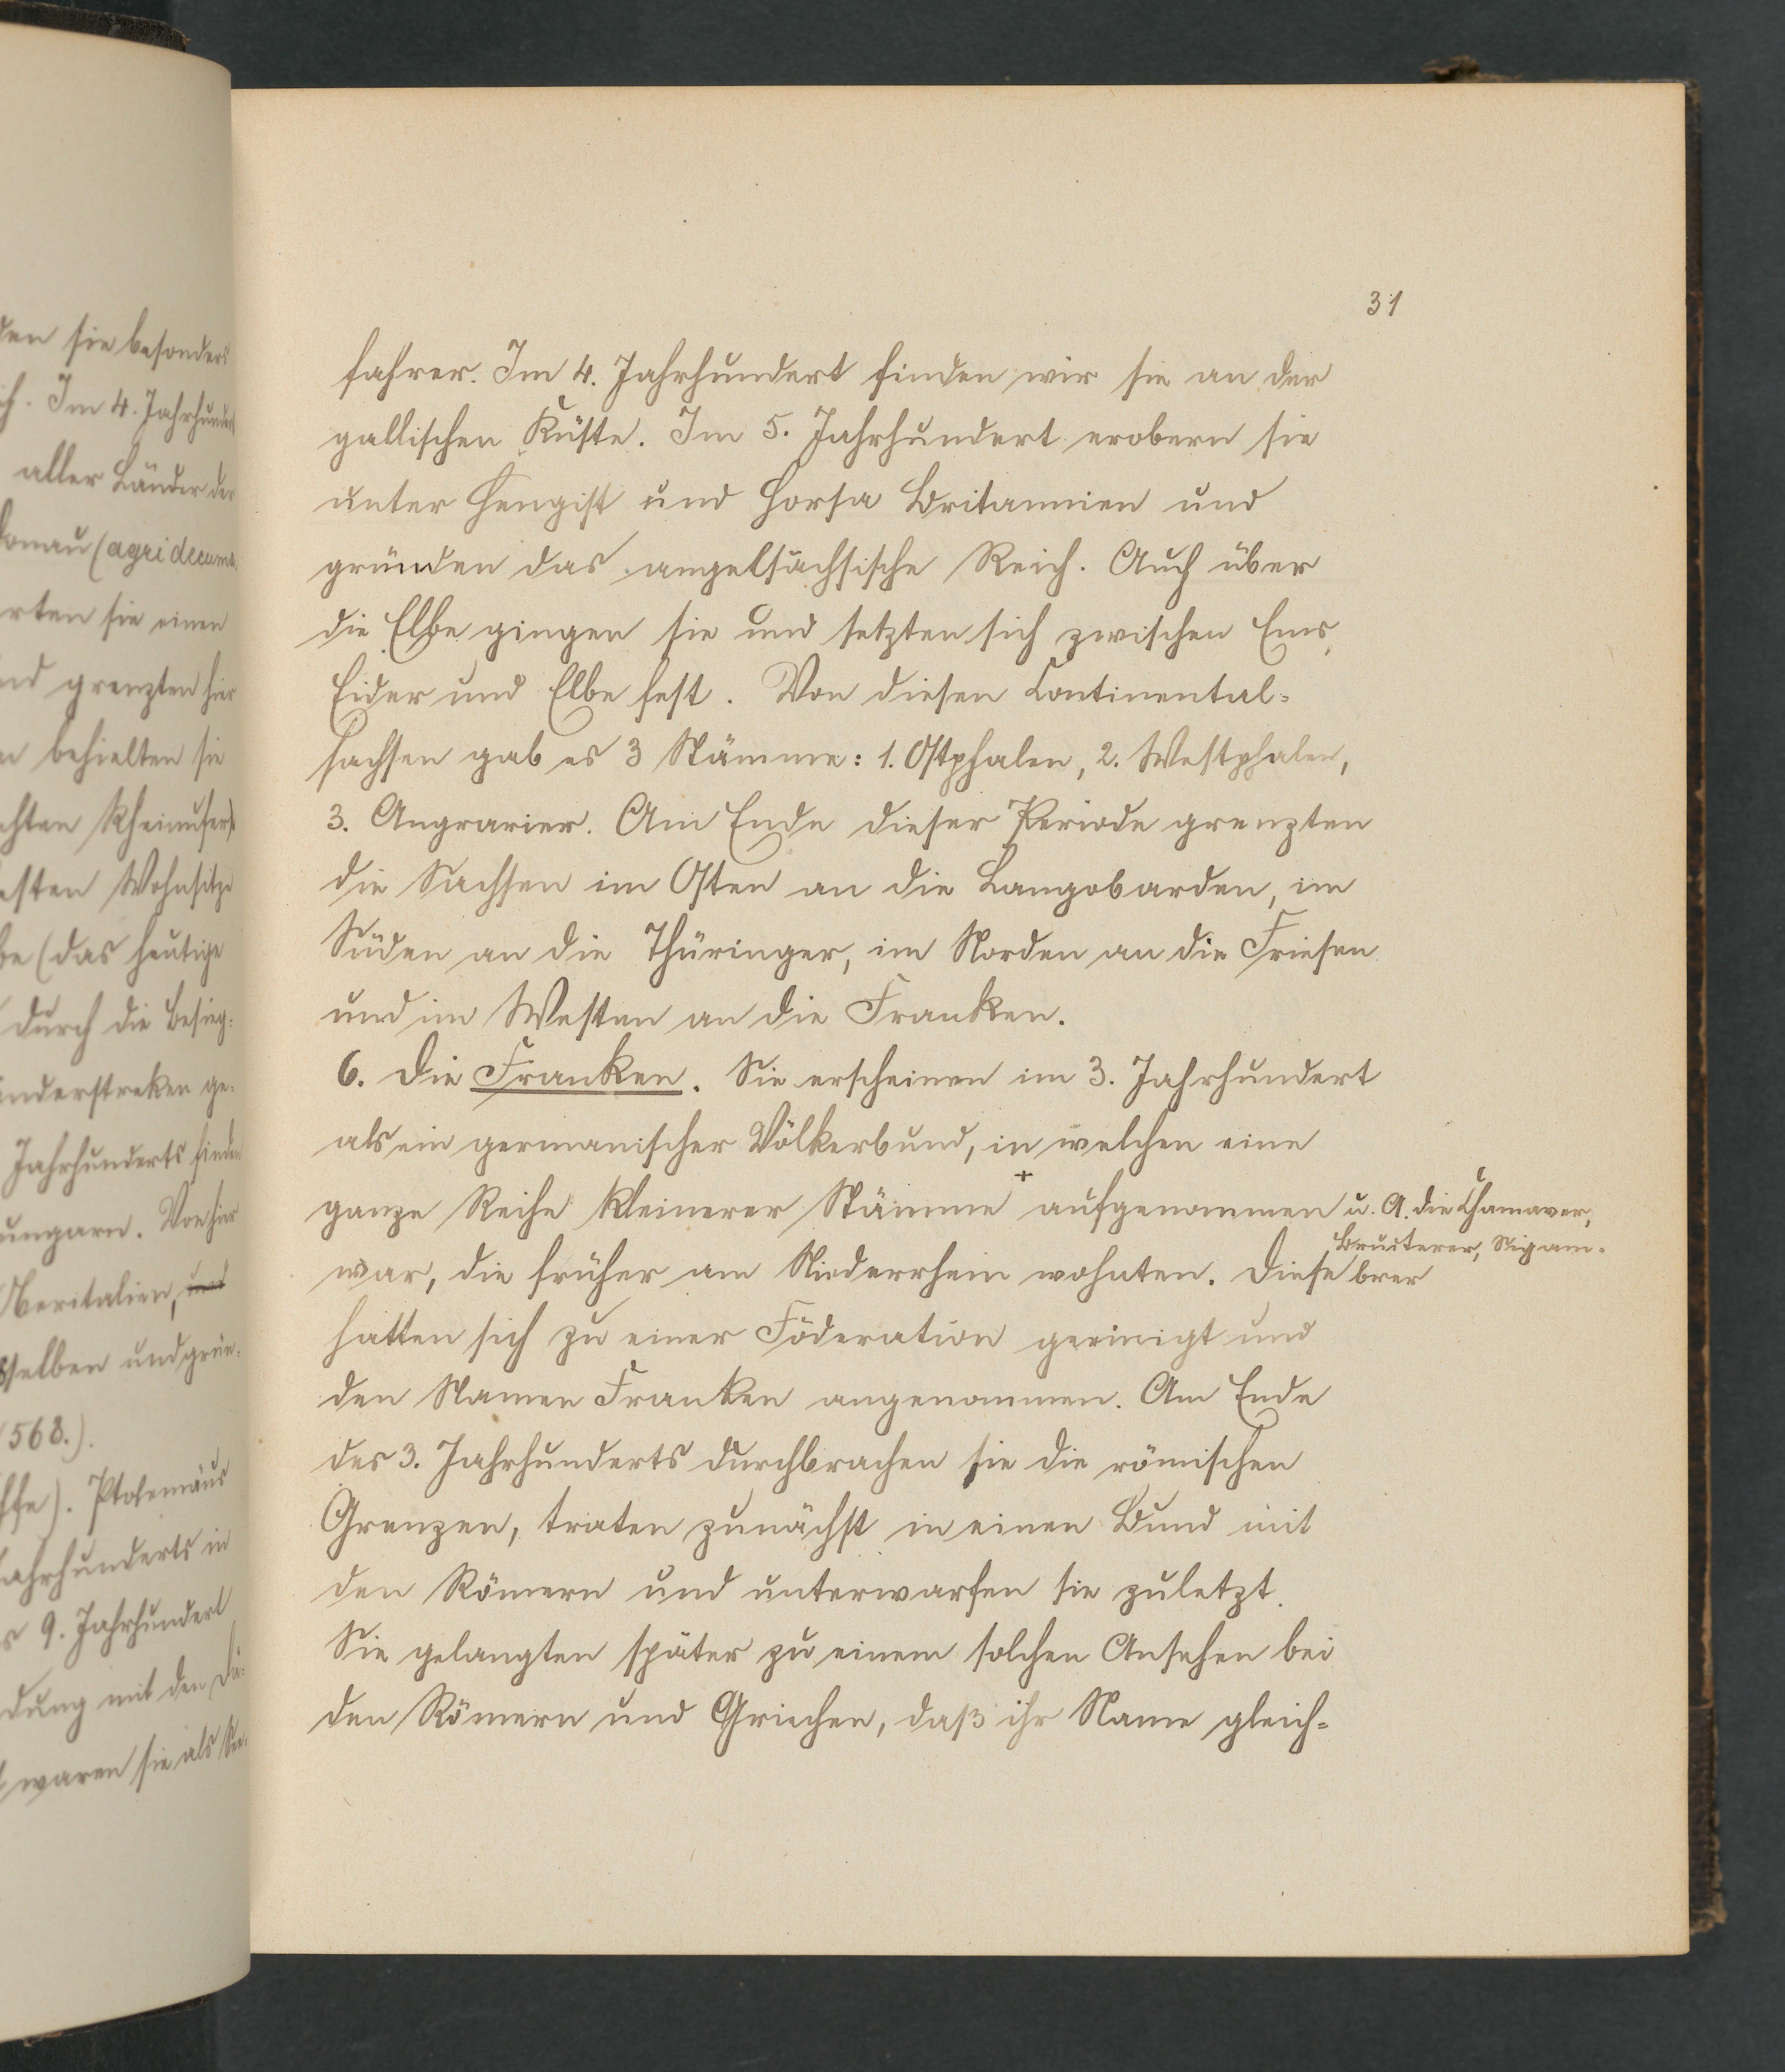 den sie besonders
ch. Im 4. Jahrhundert
aller Länder der
Donau (agri decuma
rten sie einen
und grenzten hier
n behielten sie
chten Rheinufer)
esten Wohnsitze
be (das heutige
durch die Besieg-
änderstreken ge-
Jahrhunderts finden
ungarn. Von hier
Oberitalien, und
sselben und grün-
568.).
ffe). Ptolemäus
Jahrhunderts in
s 9. Jahrhundert
dung mit den Dä-
waren sie als See-
31
fahrer. Im 4. Jahrhundert finden wir sie an der
gallischen Küste. Im 5. Jahrhundert erobern sie
unter Hengist und Horsa Britannien und
gründen das angelsächsische Reich. Auch über
die Elbe gingen sie und setzten sich zwischen Ems,
Eider und Elbe fest. Von diesen Continental-
sachsen gab es 3 Stämme: 1. Ostphalen, 2. Westphalen,
3. Angrarier. Am Ende dieser Periode grenzten
die Sachsen im Osten an die Langobarden, im
Süden an die Thüringer, im Norden an die Friesen
und im Westen an die Franken.
6. Die Franken. Sie erscheinen im 3. Jahrhundert
als ein germanischer Völkerbund, in welchen eine
ganze Reihe kleinerer Stämme + aufgenommen
u. A. die Chamaver,
Bructerer, Sigam-
brer
war, die früher am Niederrhein wohnten. Diese
hatten sich zu einer Föderation geeinigt und
den Namen Franken angenommen. Am Ende
des 3. Jahrhunderts durchbrachen sie die römischen
Grenzen, traten zunächst in einen Bund mit
den Römern und unterwarfen sie zuletzt.
Sie gelangten später zu einem solchen Ansehen bei
den Römern und Griechen, daß ihr Name gleich-